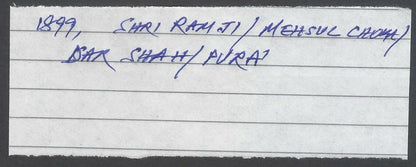 1899, SHRI RAMJI/MEHSUL CHOWK/
DAR SHAH/PURAI